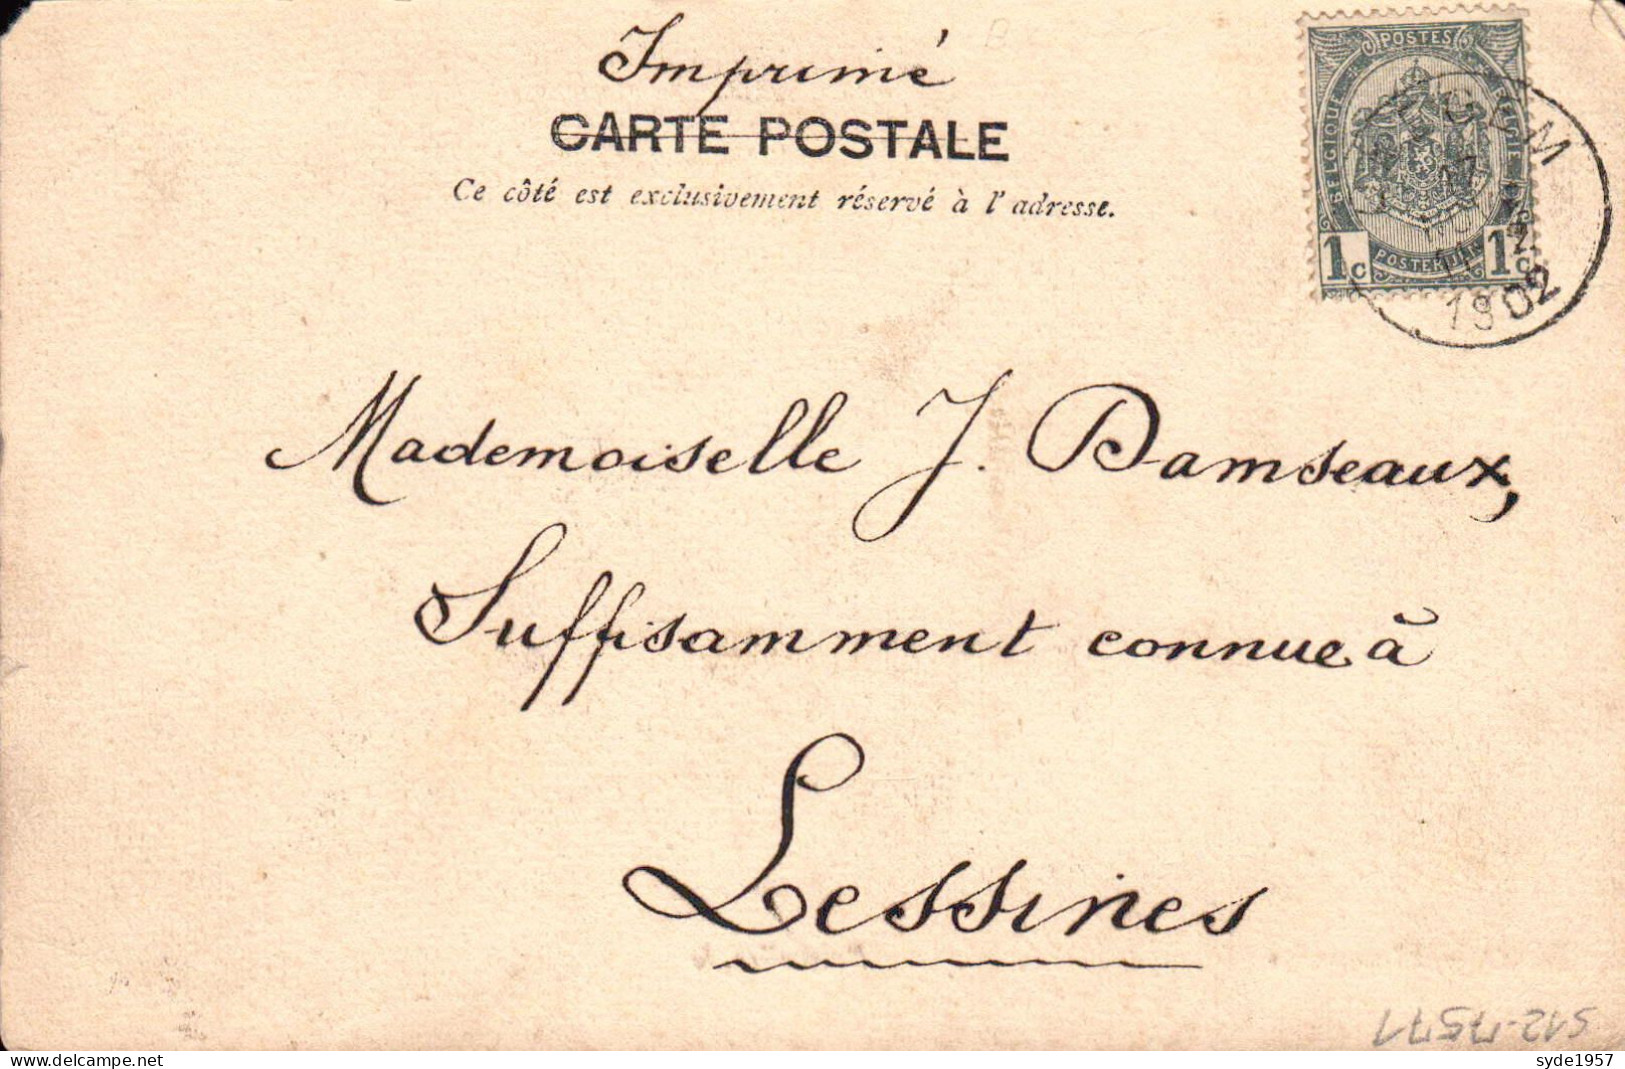 Imprimé
CARTE POSTALE
Ce côté est exclusivement réservé à l'adresse.
POSTES
BELGIQUE
BELGIE
1c POSTERIJEN 1c
1902
Mademoiselle J. Damseaux,
Suffisamment connue à
Lessines
S12-7571
syde1957